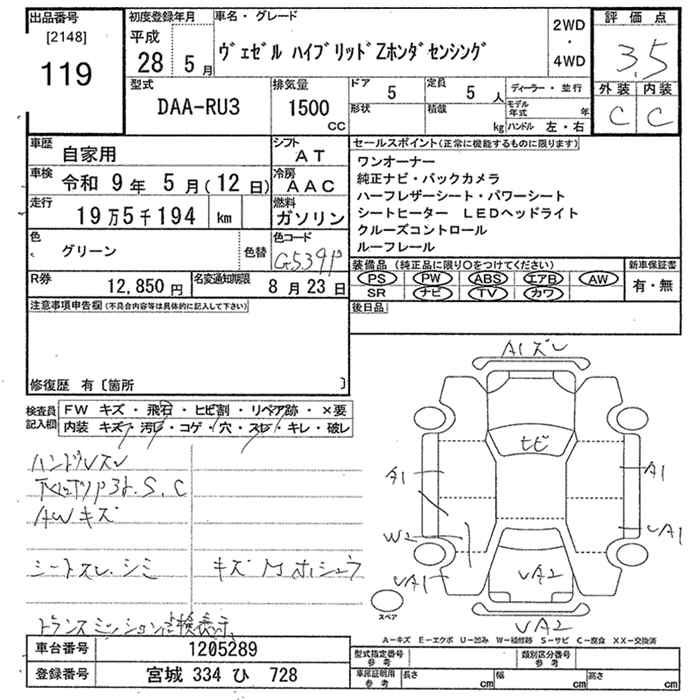 出品番号
[2148]
119
初度登録年月
平成
28 5月
車名・グレード
ヴェゼル ハイブリッドZホンダセンシング
2WD
・
4WD
評価点
3.5
外装 内装
C C
型式
DAA-RU3
排気量
1500
CC
ドア
5
定員
5 人
形状
積載
kg
ディーラー・並行
モデル年式 年
ハンドル 左・右
車歴
自家用
シフト
AT
車検
令和 9年 5月(12日)
冷房
AAC
走行
19万5千194 km
燃料
ガソリン
色
グリーン
色替
色コード
G539P
R券
12,850円
名変通知期限
8月23日
セールスポイント(正常に機能するものに限ります)
ワンオーナー
純正ナビ・バックカメラ
ハーフレザーシート・パワーシート
シートヒーター LEDヘッドライト
クルーズコントロール
ルーフレール
装備品 (純正品に限り○をつけてください)
PS PW ABS エアB AW
SR ナビ TV カワ
新車保証書
有・無
後日品
注意事項申告欄(不具合内容等は具体的に記入して下さい)
修復歴 有〔箇所 〕
検査員記入欄
FW キズ・飛石・ヒビ割・リペア跡・×要
内装 キズ・汚レ・コゲ・穴・スレ・キレ・破レ
ハンドルスレ
S.C
AWキズ
シートスレ.シミ
キズ
トランスミッション点検表示
A1ズレ
ヒビ
A1
A1
W2
UA1
UA1
UA2
UA2
スペア
A-キズ E-エクボ U-凹み W-補修跡 S-サビ C-腐食 XX-交換済
車台番号
1205289
登録番号
宮城 334 ひ 728
型式指定番号
参考
類別区分番号
参考
車庫証明用
参考
長さ cm
幅 cm
高さ cm